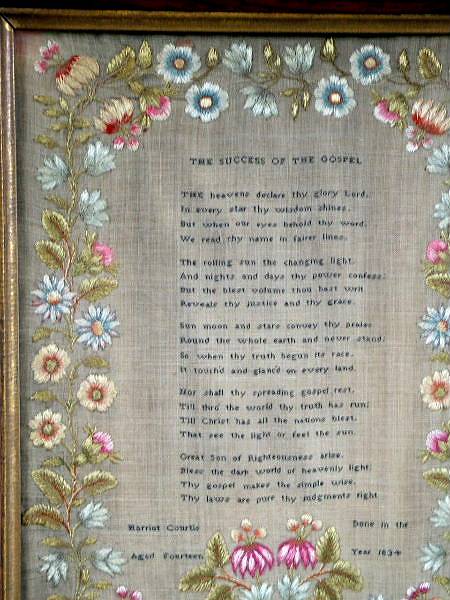 THE SUCCESS OF THE GOSPEL
THE heavens declare thy glory Lord,
In every star thy wisdom shines.
But when our eyes behold thy word,
We read thy name in fairer lines.
The rolling sun the changing light.
And nights and days thy power confess:
But the blest volume thou hast writ
Reveals thy justice and thy grace.
Sun moon and stars convey thy praise
Round the whole earth and never stand:
So when thy truth begun its race.
It touch'd and glanc'd on every land.
Nor shall thy spreading gospel rest,
Till thro' the world thy truth has run;
Till Christ has all the nations blest.
That see the light or feel the sun.
Great Son of Righteousness arise.
Bless the dark world of heavenly light:
Thy gospel makes the simple wise,
Thy laws are pure thy judgments right
Harriot Courtis Done in the
Aged Fourteen Year 1834